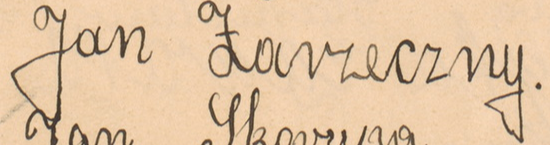 Jan Zarzeczny.
Jan Skoruna.